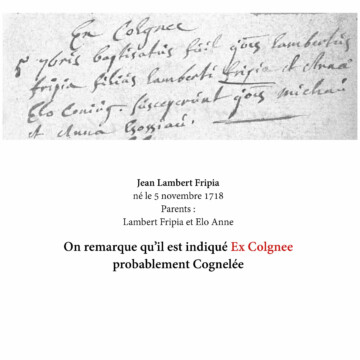 Ex Colgnee
5 9bris baptisatus fuit jões Lambertus
fripia filius Lamberti fripia et Anna
Elo Coniug. susceperunt jões michau
et Anna
Jean Lambert Fripia
né le 5 novembre 1718
Parents :
Lambert Fripia et Elo Anne
On remarque qu’il est indiqué Ex Colgnee
probablement Cognelée